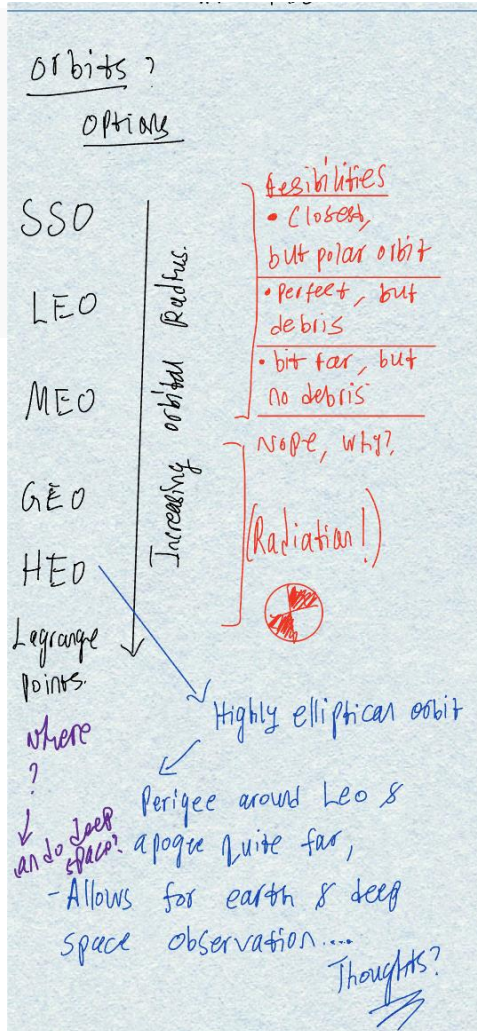 Orbits ?
Options
SSO
LEO
MEO
GEO
HEO
Lagrange
Points.
Increasing orbital Radius.
fesibilities
• Closest,
but polar orbit
• Perfect, but
debris
• bit far, but
no debris
Nope, why?
(Radiation!)
Highly elliptical orbit
Perigee around Leo &
apogee quite far,
- Allows for earth & deep
space observation....
Thoughts?
where
?
deep
space?